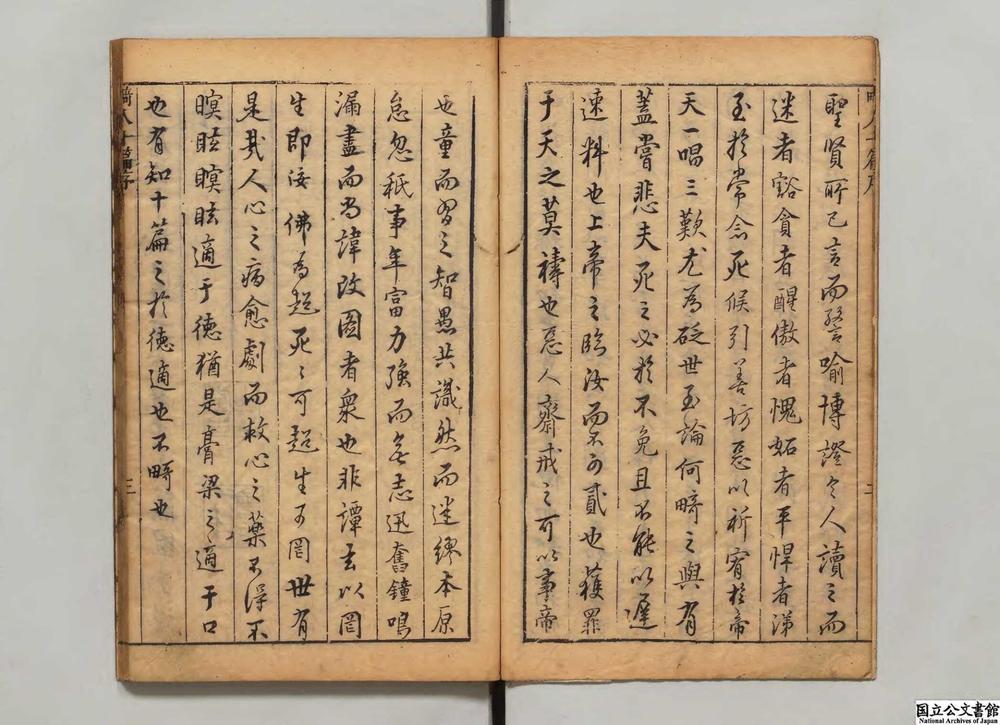 聖賢所已言而警喻博證令人讀之而
迷者豁貪者醒傲者愧妬者平悍者涕
至於常念死候引善坊惡以祈宥於帝
天一唱三歎尤為砭世至論何畸之與有
蓋嘗悲夫死之必於不免且不能以遲
速料也上帝之臨汝而不可貳也獲罪
于天之莫禱也惡人齋戒之可以事帝
也童而習之智愚共識然而迷謬本原
怠忽秪事年富力強而無志迅奮鐘鳴
漏盡而尚諱改圖者衆也非譚玄以罔
生即佞 佛為超死〻可超生可罔世有
是哉人心之病愈劇而救心之藥不得不
瞑眩瞑眩適于德猶是膏粱之適于口
也有知十篇之於德適也不畸也
畸人十篇序
三
国立公文書館
National Archives of Japan